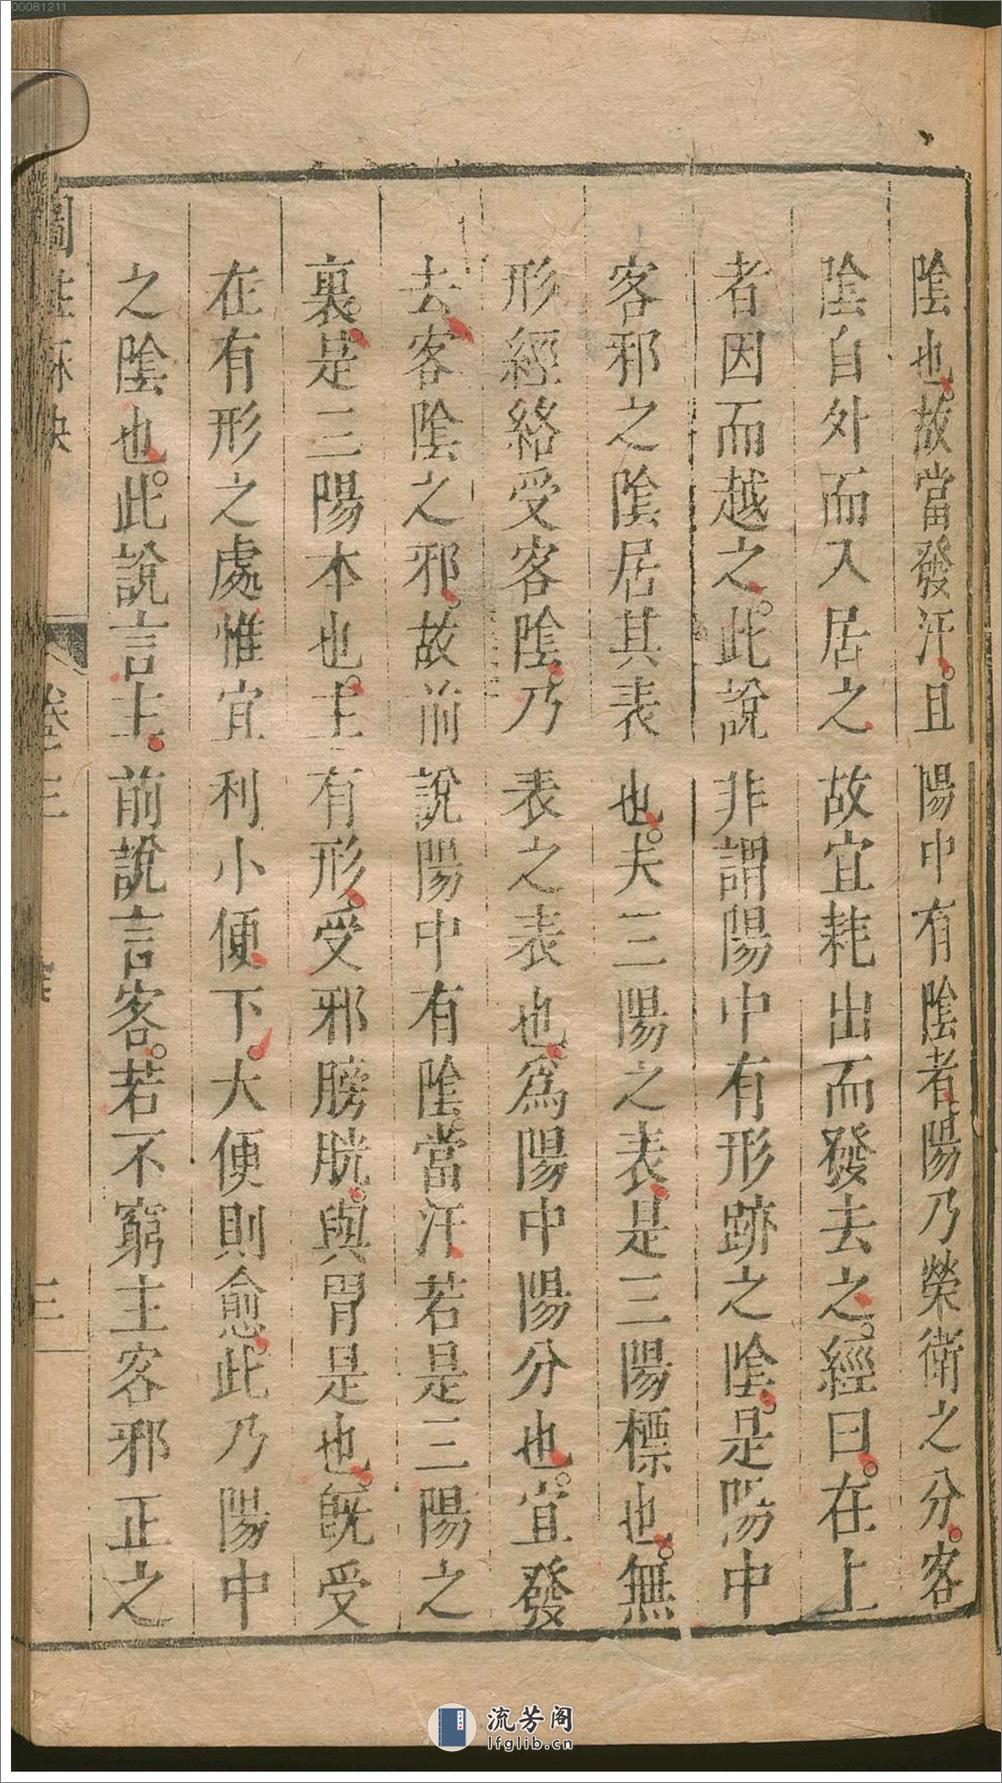 00081211
陰也故當發汗且陽中有陰者陽乃榮衛之分客
陰自外而入居之故宜耗出而發去之經曰在上
者因而越之此說非謂陽中有形跡之陰是陽中
客邪之陰居其表也夫三陽之表是三陽標也無
形經絡受客陰乃表之表也為陽中陽分也宜發
去客陰之邪故前說陽中有陰當汗若是三陽之
裏是三陽本也主有形受邪膀胱與胃是也既受
在有形之處惟宜利小便下大便則愈此乃陽中
之陰也此說言主前說言客若不窮主客邪正之
圖 脉訣 卷之三 三
流芳阁
lfglib.cn